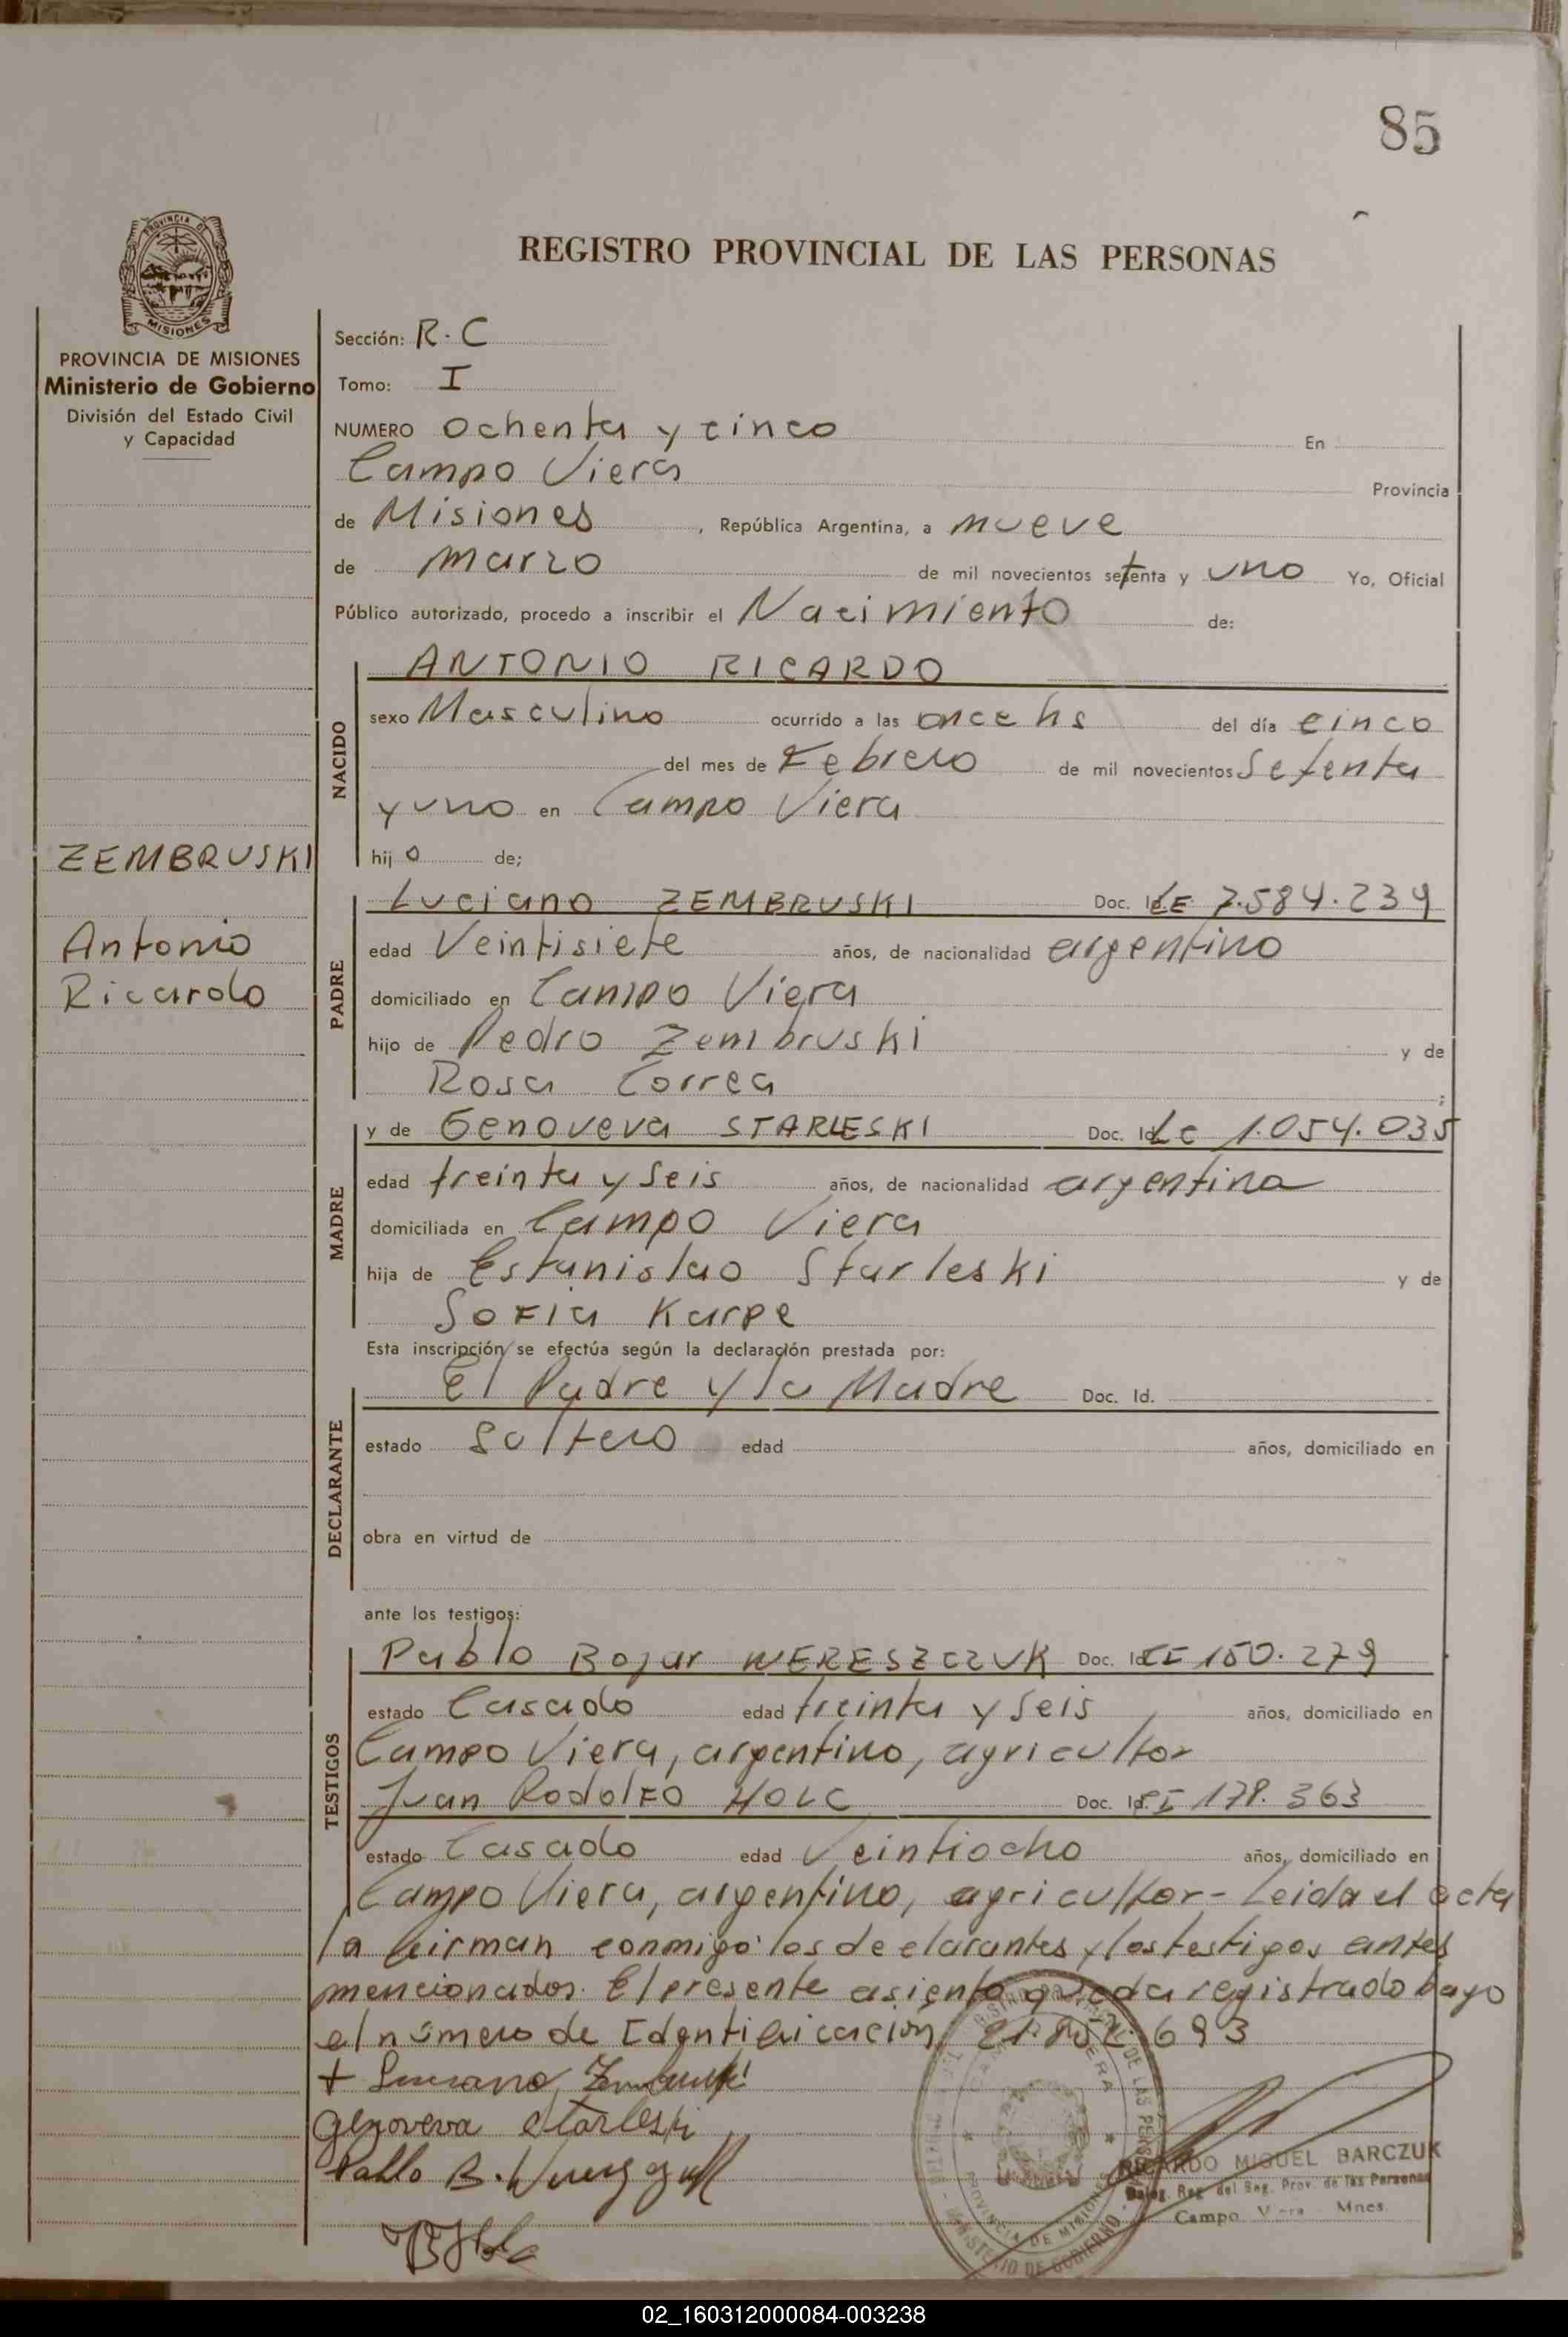 85
PROVINCIA DE
MISIONES
PROVINCIA DE MISIONES
Ministerio de Gobierno
División del Estado Civil
y Capacidad
ZEMBRUSKI
Antonio
Ricardo
REGISTRO PROVINCIAL DE LAS PERSONAS
Sección: R.C
Tomo: I
NUMERO Ochenta y cinco En
Campo Viera Provincia
de Misiones, República Argentina, a nueve
de marzo de mil novecientos setenta y uno Yo, Oficial
Público autorizado, procedo a inscribir el Nacimiento de:
NACIDO
ANTONIO RICARDO
sexo Masculino ocurrido a las once hs del día cinco
del mes de Febrero de mil novecientos Setenta
y uno en Campo Viera
hijo de;
PADRE
Luciano ZEMBRUSKI Doc. Id. LE 7.584.239
edad Veintisiete años, de nacionalidad argentino
domiciliado en Campo Viera
hijo de Pedro Zembruski y de
Rosa Correa ;
MADRE
y de Genoveva STARLESKI Doc. Id. Lc 1.054.035
edad treinta y Seis años, de nacionalidad argentina
domiciliada en Campo Viera
hija de Estanislao Starleski y de
Sofia Karpe
Esta inscripción se efectúa según la declaración prestada por:
DECLARANTE
El Padre y la Madre Doc. Id.
estado Soltero edad años, domiciliado en
obra en virtud de
ante los testigos:
TESTIGOS
Pablo Bojar WERESZCZUK Doc. Id. CI 150.279
estado Casado edad treinta y Seis años, domiciliado en
Campo Viera, argentino, agricultor
Juan Rodolfo HOLC Doc. Id. CI 178.363
estado Casado edad Veintiocho años, domiciliado en
Campo Viera, argentino, agricultor- Leida el acta
la firman conmigo los declarantes y los testigos antes
mencionados. El presente asiento queda registrado bajo
el número de Identificación 693
+ Luciano Zembruski
Genoveva Starleski
Pablo B.
RICARDO MIGUEL BARCZUK
Deleg. Reg. del Reg. Prov. de las Personas
Campo Viera Mnes.
PROVINCIA DE MISIONES
MINISTERIO DE GOBIERNO
02_160312000084-003238